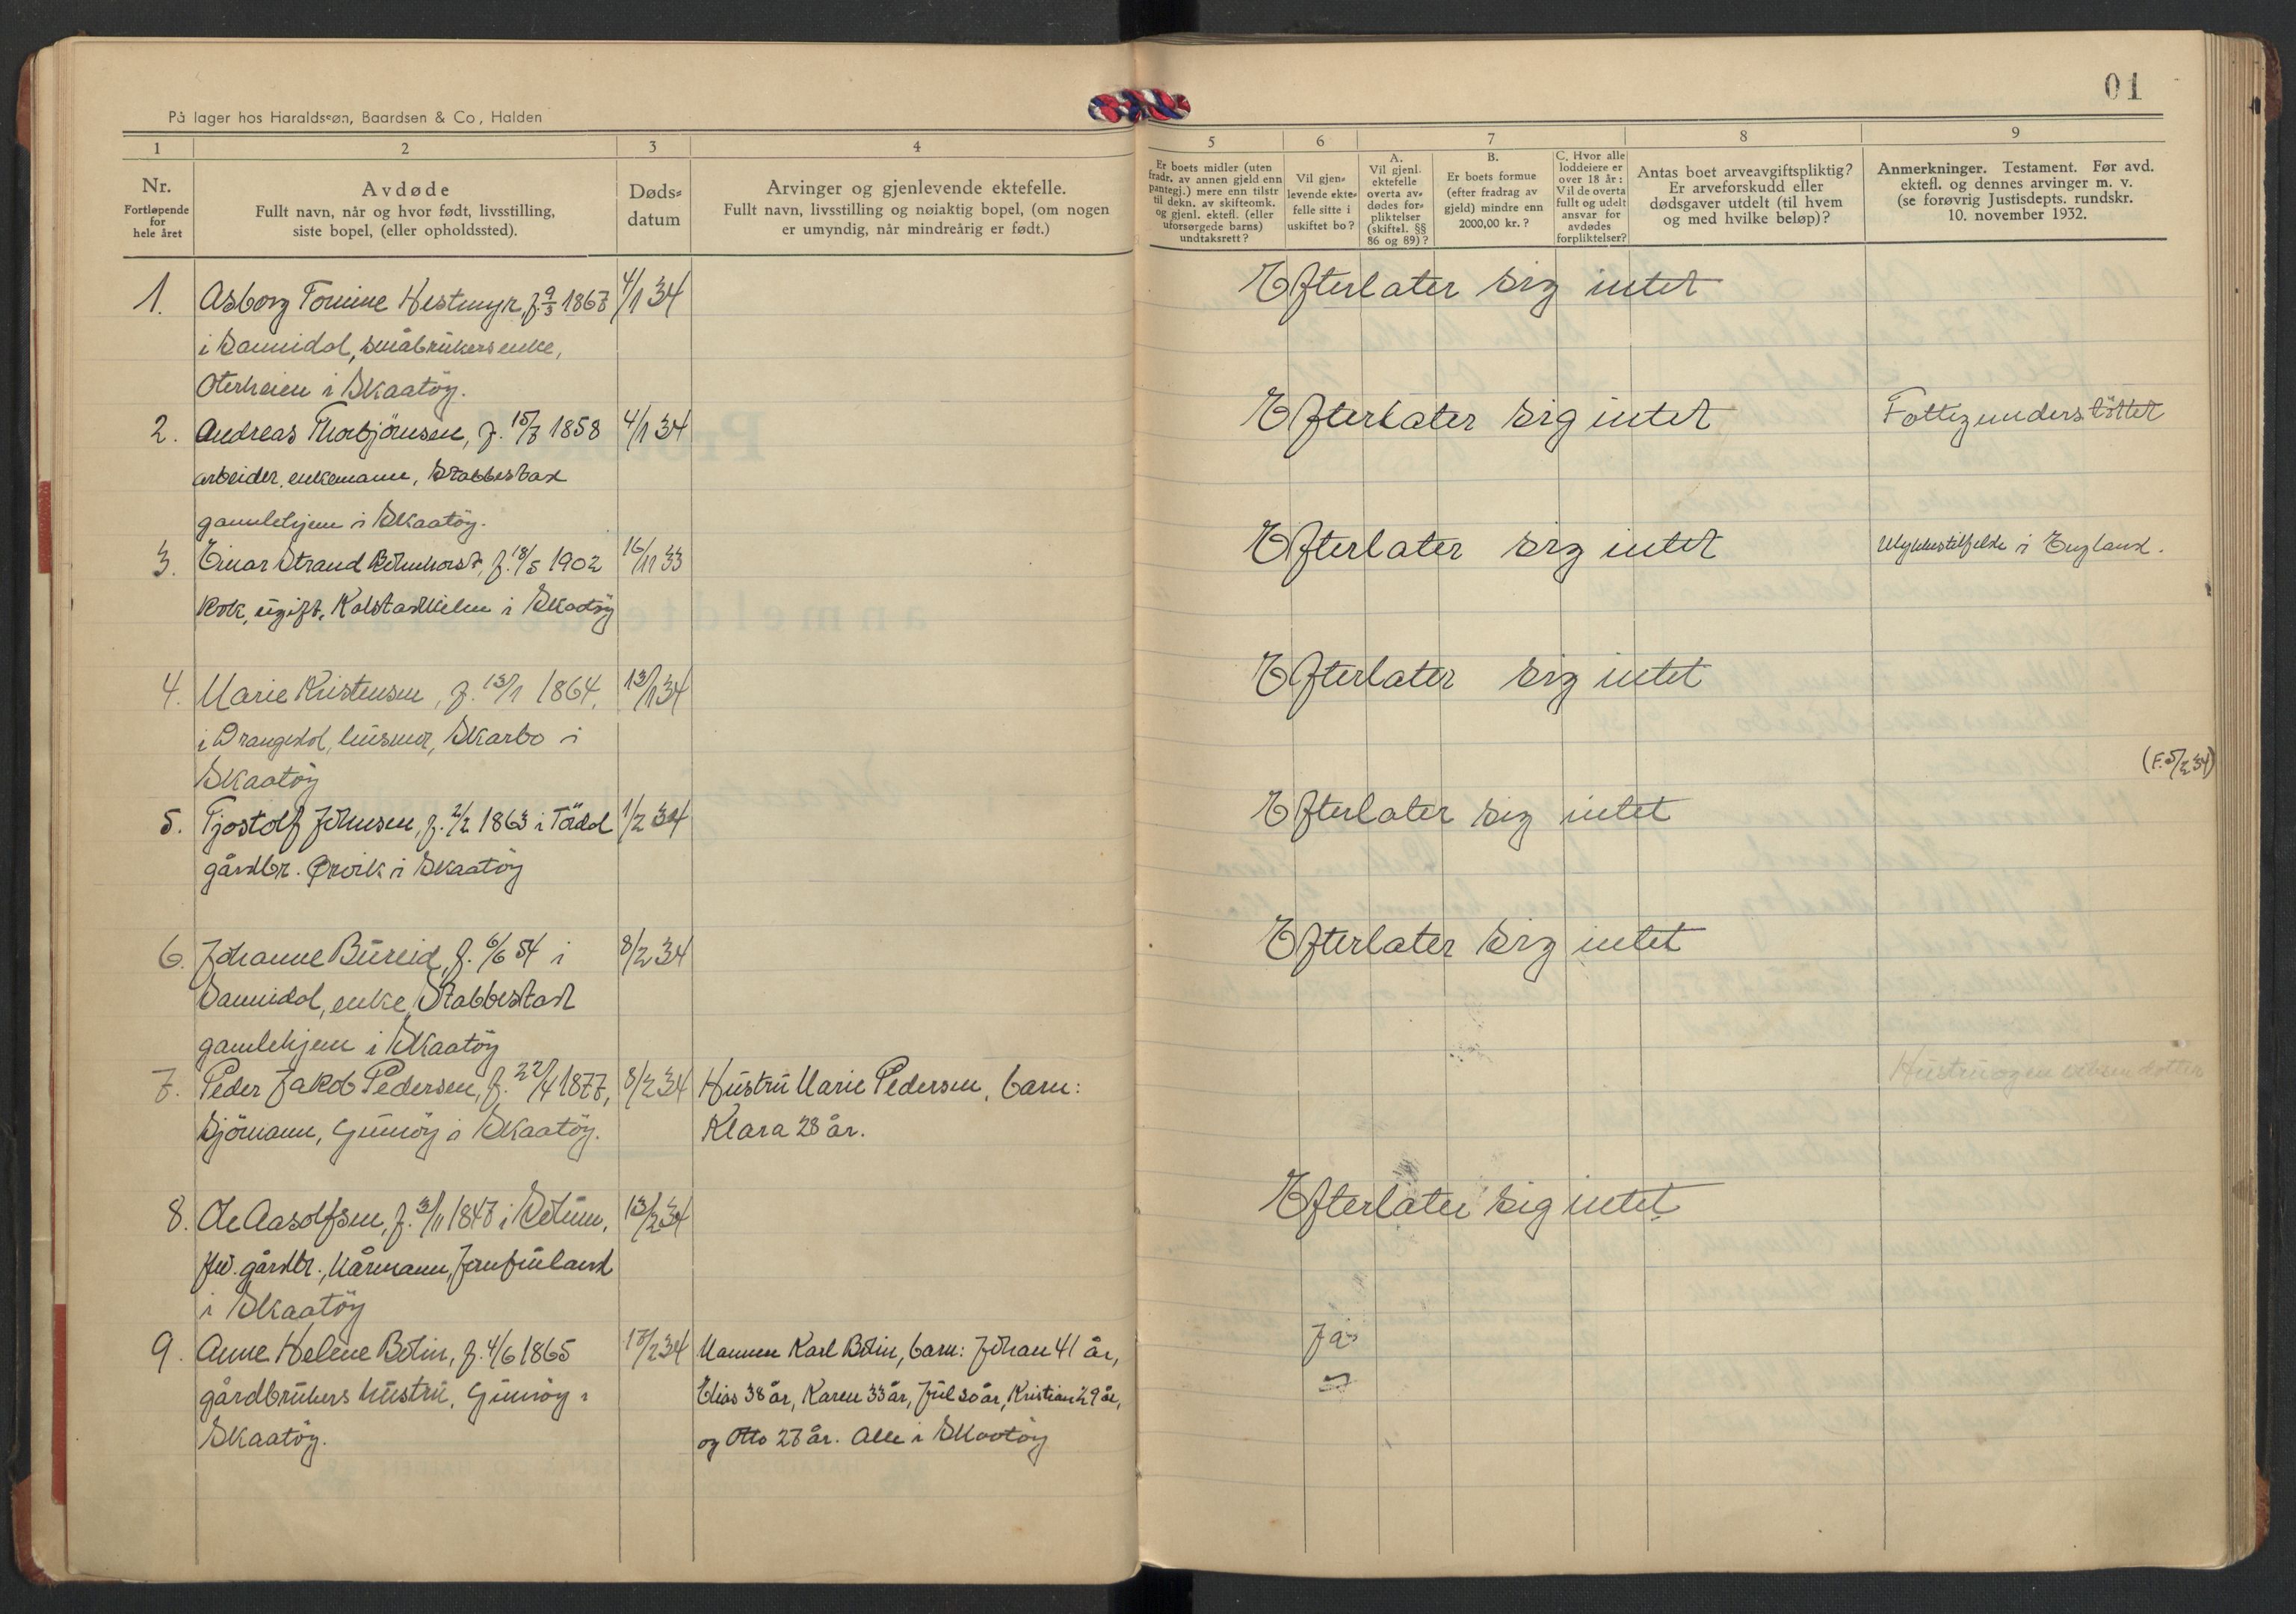 På lager hos Haraldssøn, Baardsen & Co, Halden
01
1 2 3 4 5 6 7 8 9
Nr.
Fortløpende
for
hele året
Avdøde
Fullt navn, når og hvor født, livsstilling,
siste bopel, (eller opholdssted).
Døds-
datum
Arvinger og gjenlevende ektefelle.
Fullt navn, livsstilling og nøiaktig bopel, (om nogen
er umyndig, når mindreårig er født.)
Er boets midler (uten
fradr. av annen gjeld enn
pantegj.) mere enn tilstr
til dekn. av skifteomk.
og gjenl. ektefl. (eller
uforsørgede barns)
undtaksrett?
Vil gjen-
levende ekte-
felle sitte i
uskiftet bo?
A.
Vil gjenl.
ektefelle
overta av-
dødes for-
pliktelser
(skiftel. §§
86 og 89)?
B.
Er boets formue
(efter fradrag av
gjeld) mindre enn
2000,00 kr.?
C. Hvor alle
loddeiere er
over 18 år:
Vil de overta
fullt og udelt
ansvar for
avdødes
forpliktelser?
Antas boet arveavgiftspliktig?
Er arveforskudd eller
dødsgaver utdelt (til hvem
og med hvilke beløp)?
Anmerkninger. Testament. Før avd.
ektefl. og dennes arvinger m. v.
(se forøvrig Justisdepts. rundskr.
10. november 1932.
1. Asborg Tomine Hestmyr, f. 9/3 1867 4/1 34 Efterlater sig intet
i Sannidal, småbrukers enke,
Oterheien i Skaatöy.
2. Andreas Thorbjörnsen, f. 15/3 1858 4/1 34 Efterlater sig intet Fattigunderstöttet
arbeider, enkemann, Stabbestad
gamlehjem i Skaatöy.
3. Einar Strand f. 18/5 1902 16/11 33 Efterlater sig intet Ulykkestilfelde i England.
kok, ugift, Kalstadkilen i Skaatöy
4. Marie Kristensen, f. 13/1 1864, 13/1 34 Efterlater sig intet
i Drangedal, husmor, Skarbo i
Skaatöy
(F. 5/2 34)
5. Tjostolf Johnsen, f. 2/2 1863 i Tördal 1/2 34 Efterlater sig intet
gårdbr. Ørvik i Skaatöy
6. Johanne Bureid, f. 6/6 54 i 8/2 34 Efterlater sig intet
Sannidal, enke, Stabbestad
gamlehjem i Skaatöy
7. Peder Jakob Pedersen, f. 22/4 1877, 8/2 34 Hustru Marie Pedersen, barn:
Sjömann, Gumöy i Skaatöy. Klara 28 år.
8. Ole Aasolfsen, f. 3/11 1847 i Solum, 13/2 34 Efterlater sig intet
fhv. gårdbr., kårmann, Jomfruland
i Skaatöy
9. Anne Helene Bolin, f. 4/6 1865 17/2 34 Mannen Karl Bolin, barn: Johan 41 år, Ja
gårdbrukers hustru, Gumöy i Elias 38 år, Karen 33 år, Juul 30 år, Kristian 29 år,
Skaatöy. og Otto 27 år. Alle i Skaatöy